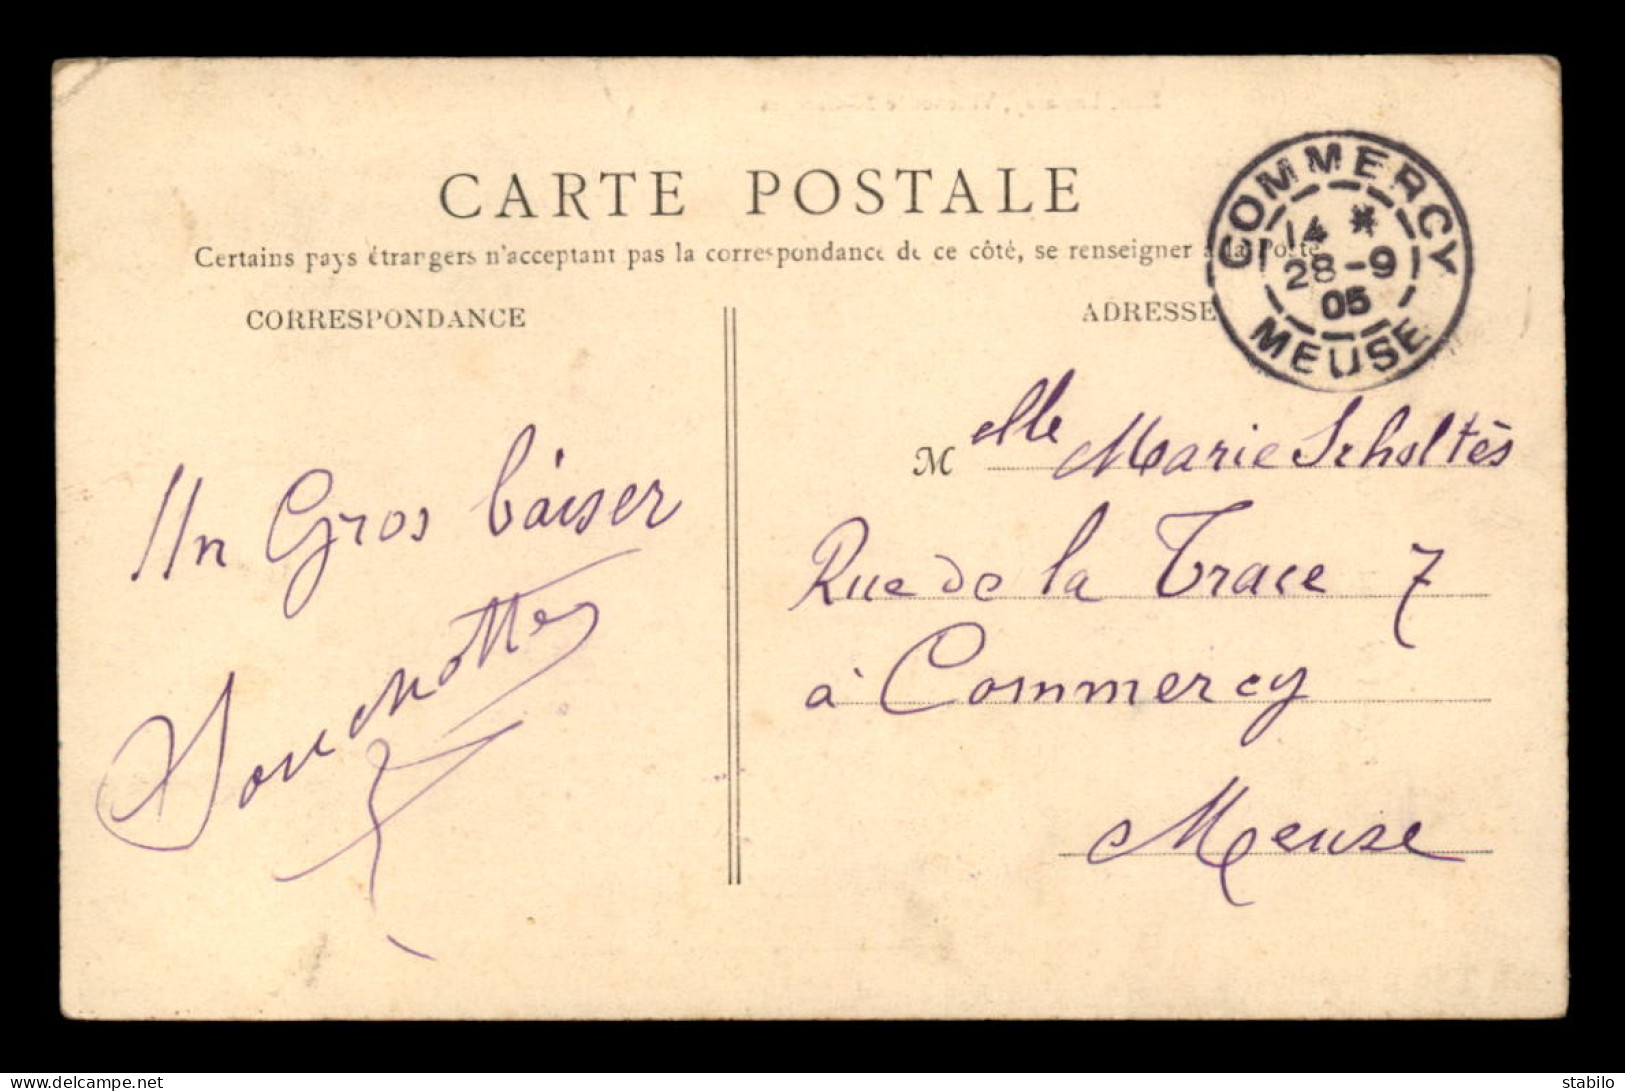 CARTE POSTALE
Certains pays étrangers n'acceptant pas la correspondance de ce côté, se renseigner à la Poste
CORRESPONDANCE
ADRESSE
COMMERCY
14 *
28-9
05
MEUSE
Un Gros baiser
Melle Marie Scholtès
Rue de la Trace 7
à Commercy
Meuse
delcampe.net
stabilo